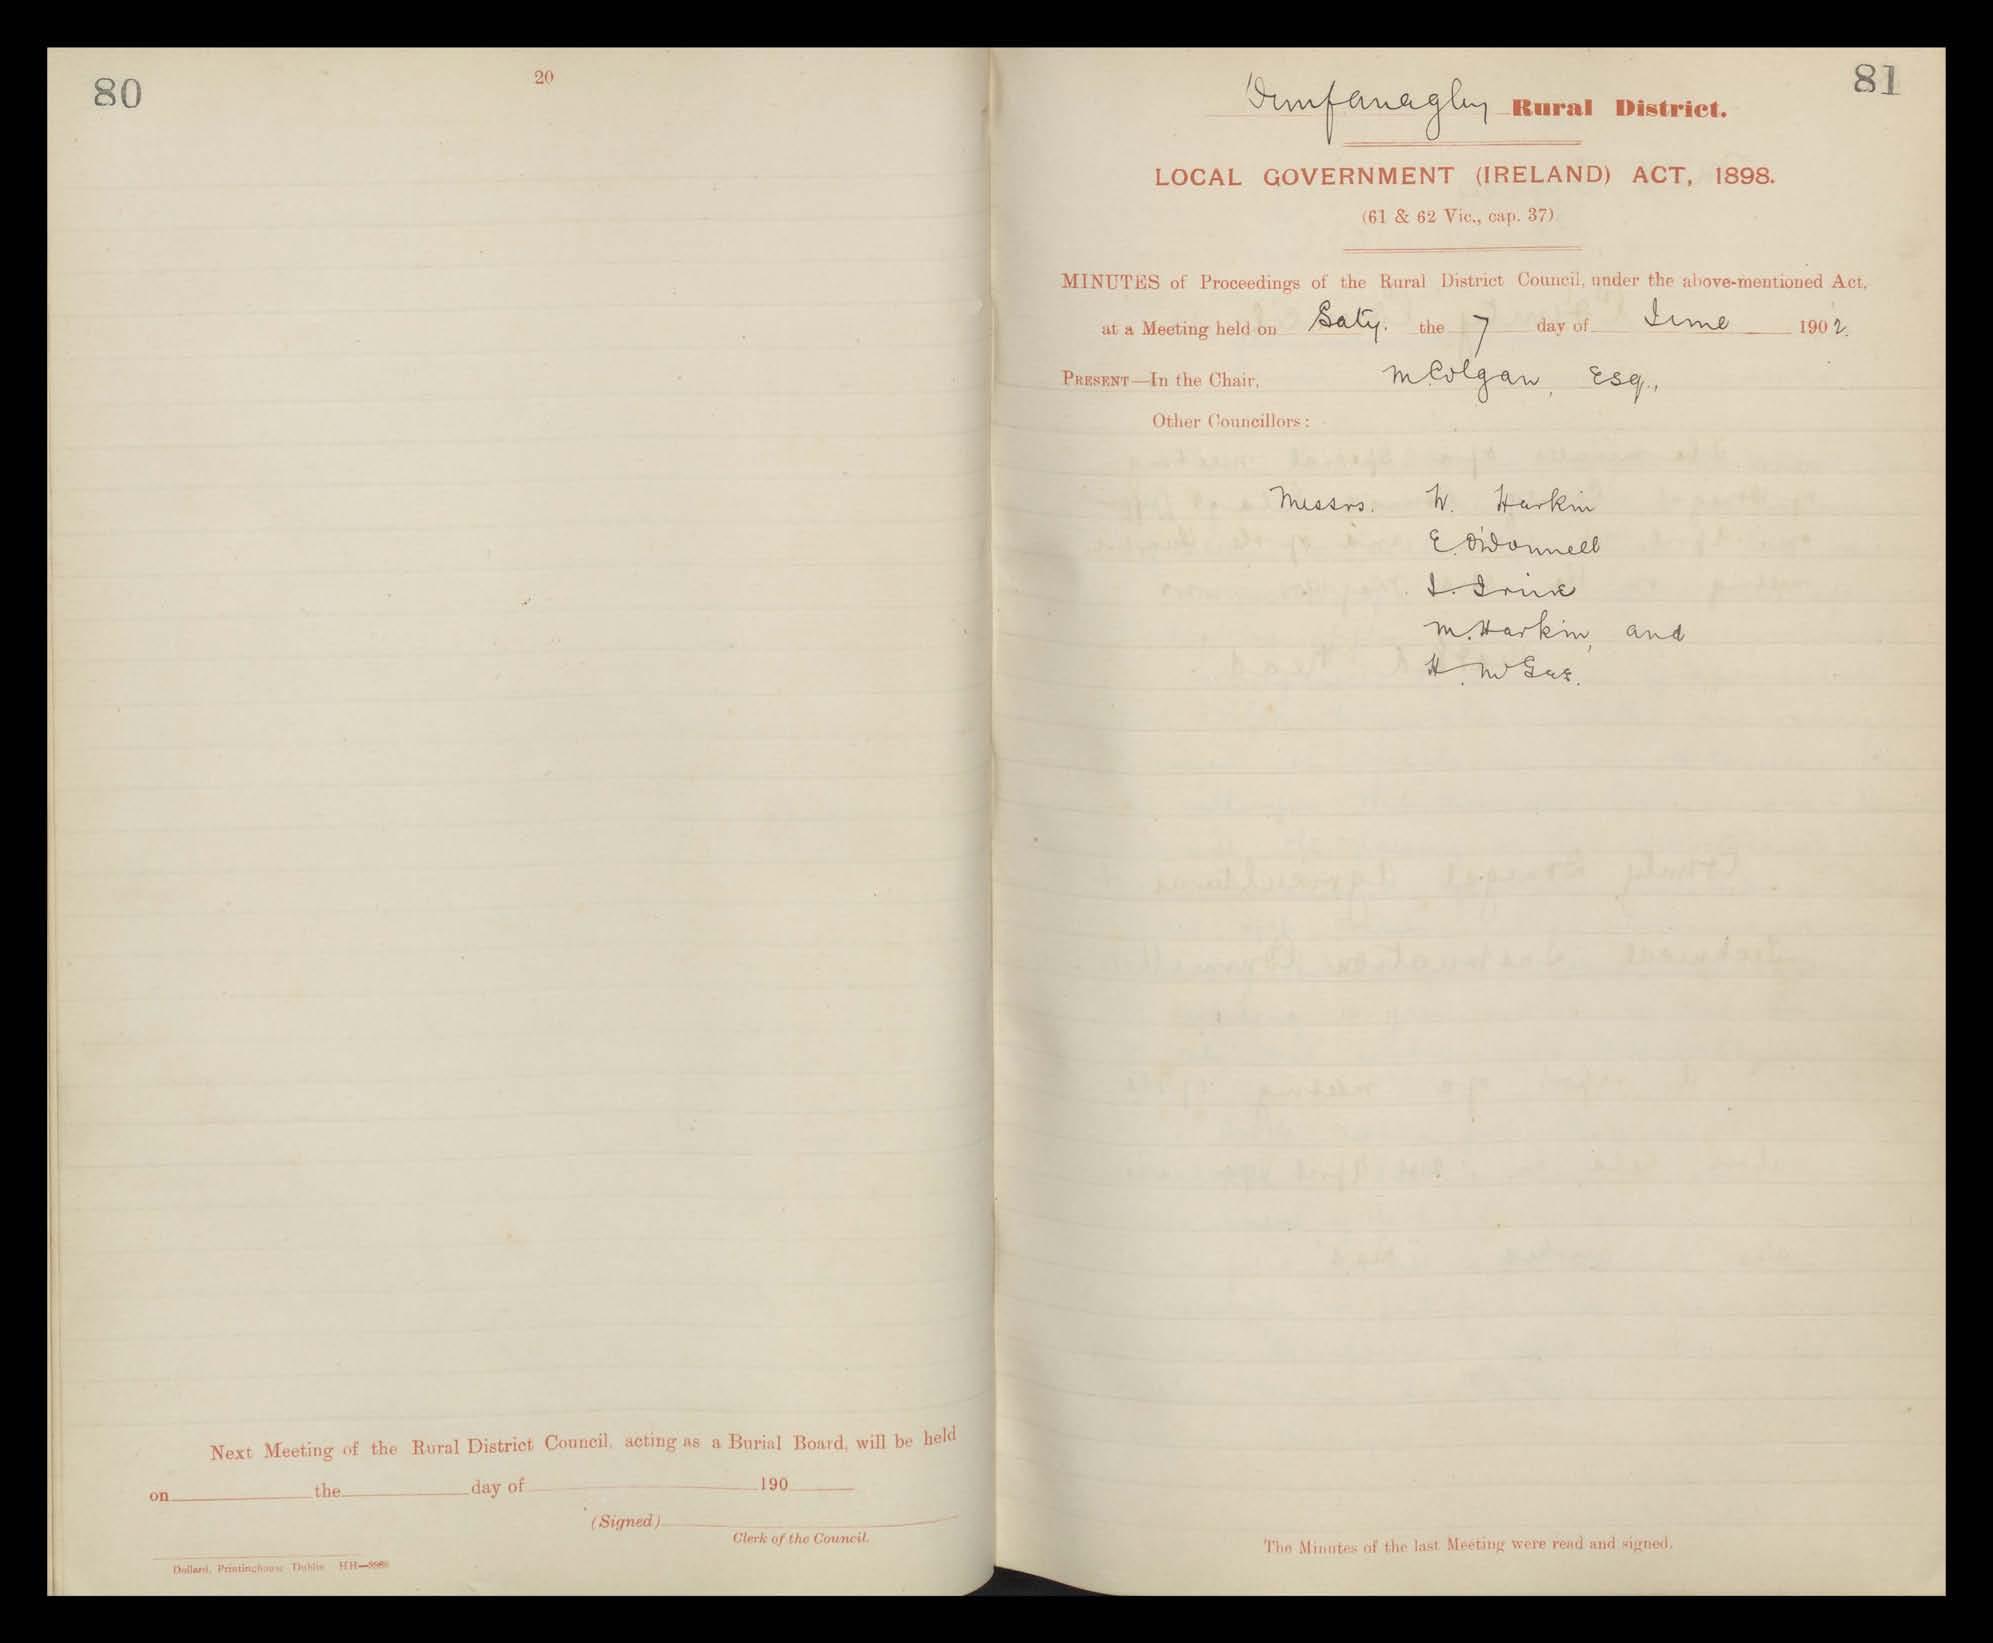 80
20
Next Meeting of the Rural District Council, acting as a Burial Board, will be held
on the day of 190
(Signed)
Clerk of the Council.
Dollard, Printinghouse Dublin HH—
81
Dunfanaghy Rural District.
LOCAL GOVERNMENT (IRELAND) ACT, 1898.
(61 & 62 Vic., cap. 37)
MINUTES of Proceedings of the Rural District Council, under the above-mentioned Act,
at a Meeting held on Saty. the 7 day of June 1902.
PRESENT—In the Chair, M Colgan, Esq.,
Other Councillors:
Messrs. W. Harkin
E. O'Donnell
I. Irvine
M. Harkin, and
H. McGee.
The Minutes of the last Meeting were read and signed.